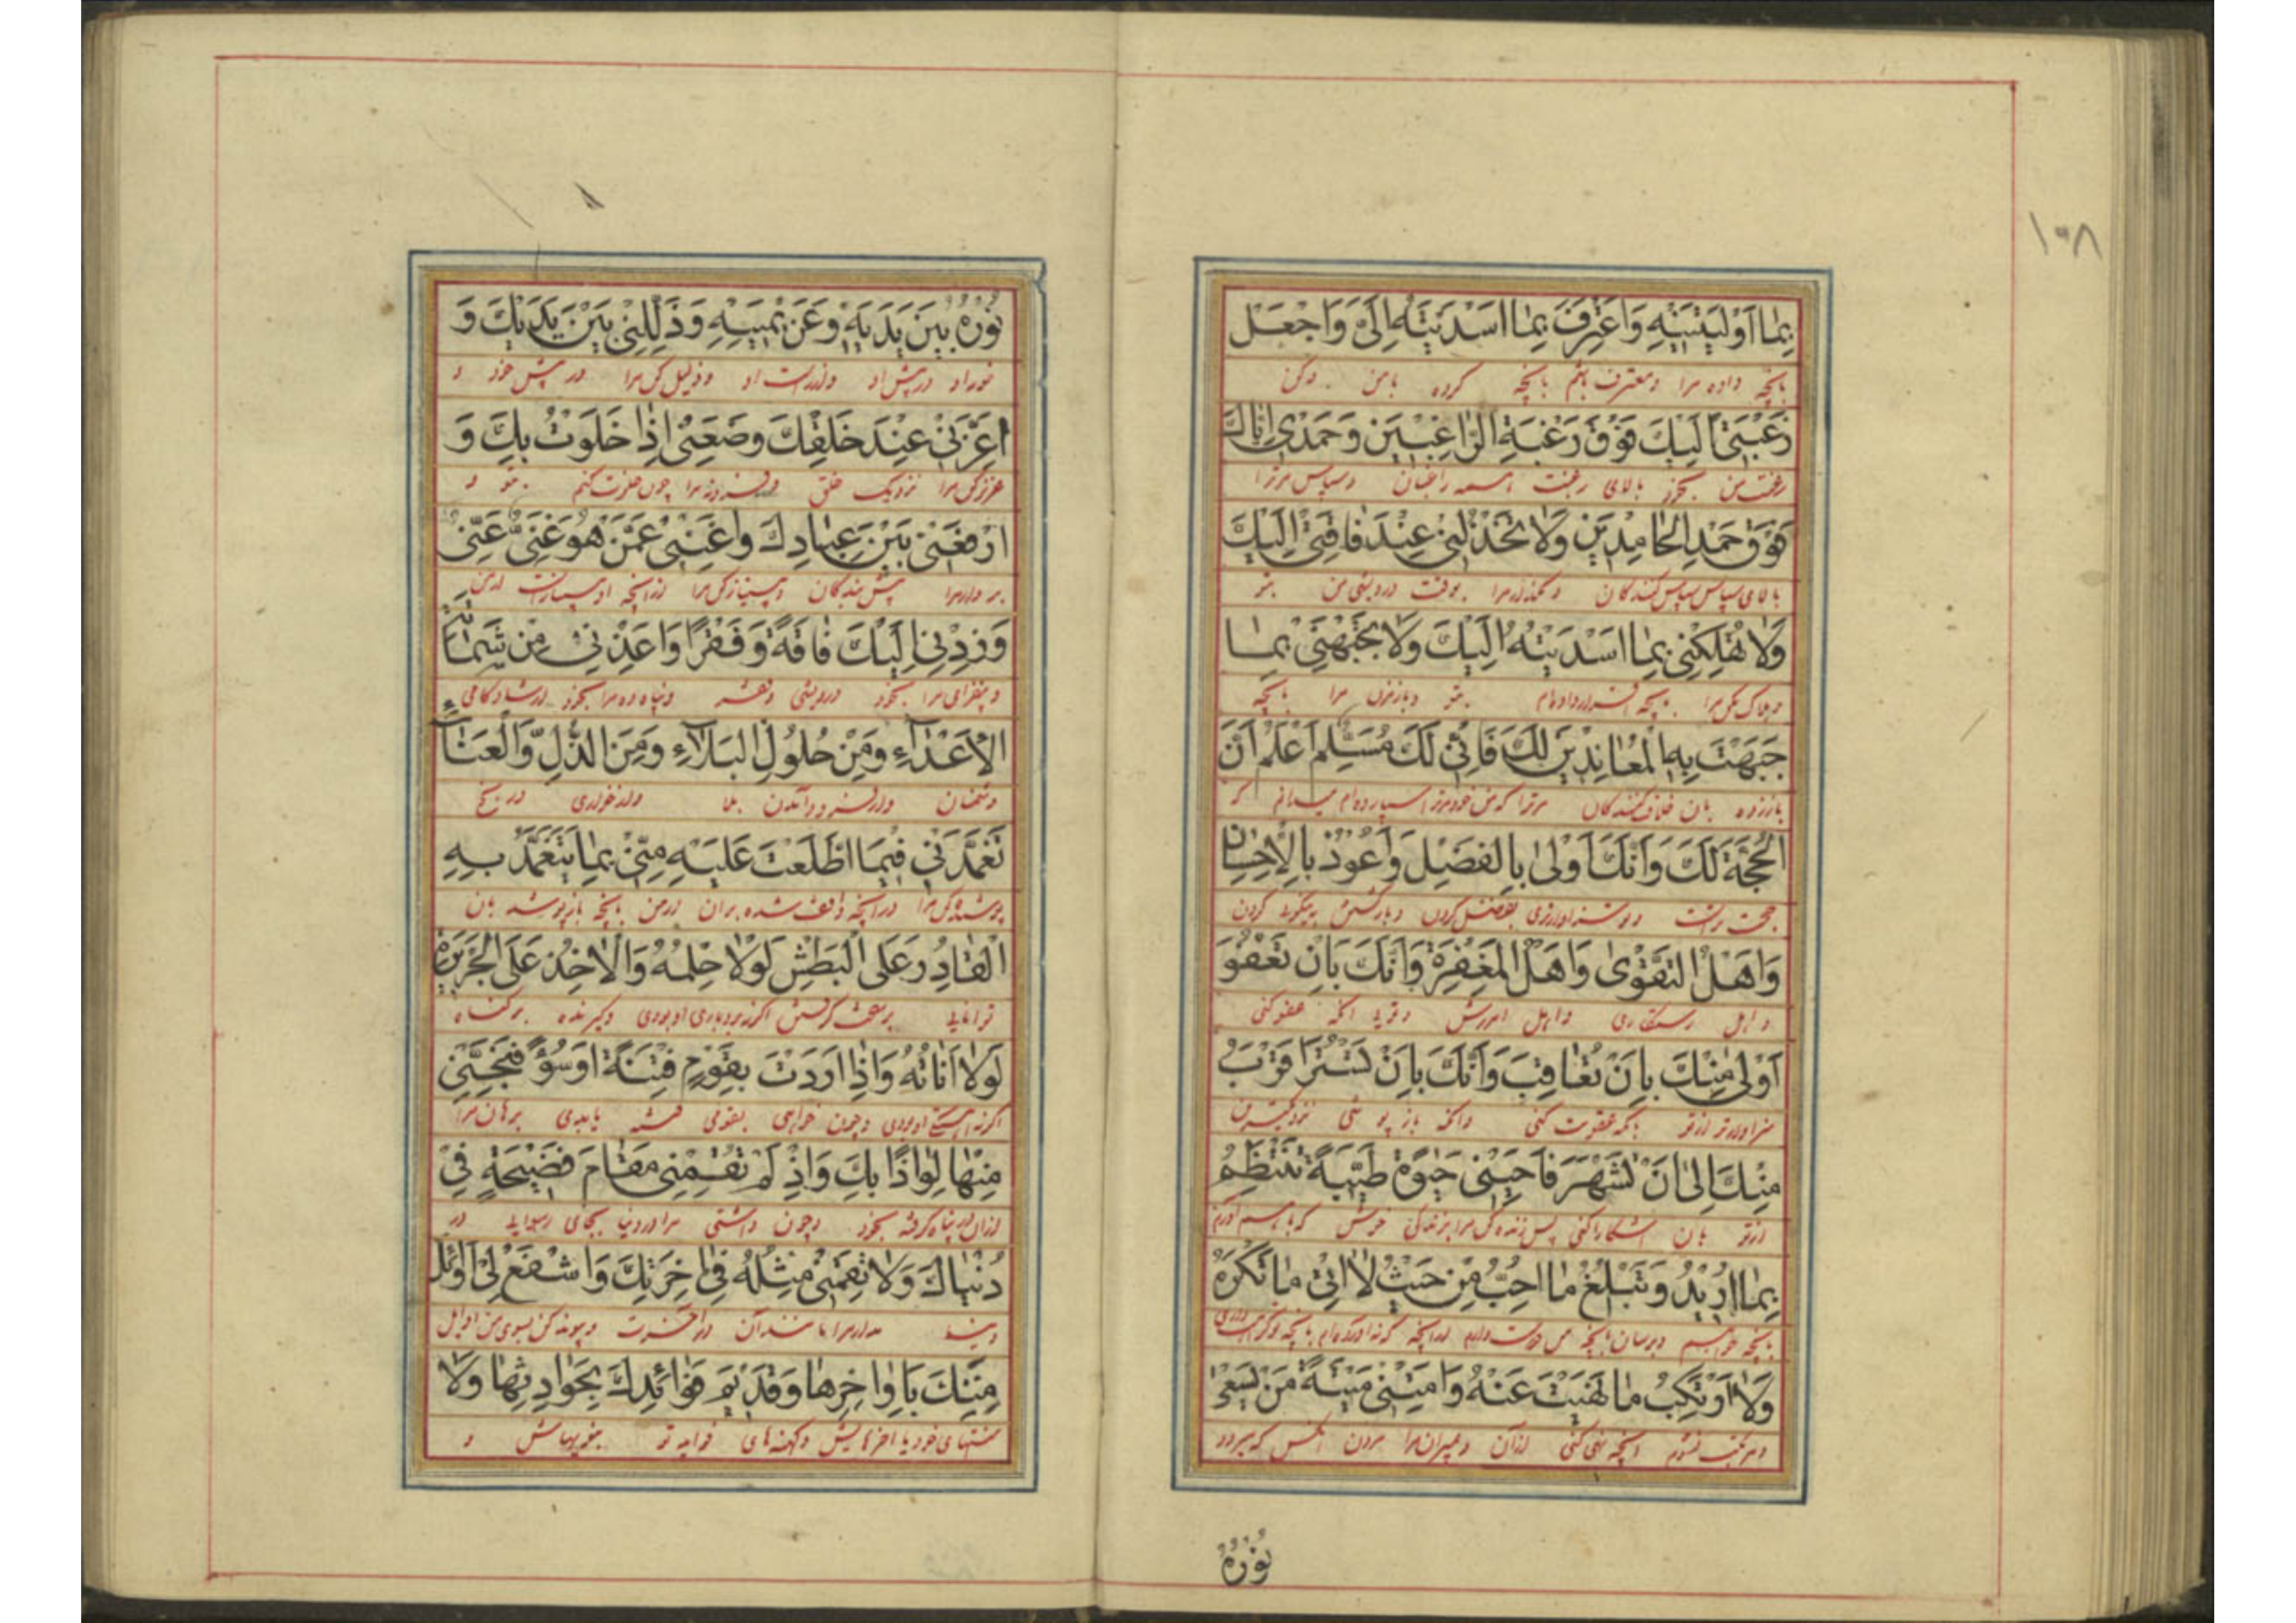 ١٠٨
بِمَا أَوْلَيْتَنِيهِ وَاَعْتَرِفَ بِمَا اَسْدَيْتَهُ اِلَيَّ وَاجْعَلْ
بانچه داده مرا و معترف باشم بانچه کرده بامن و کن
رَغْبَتِي اِلَيْكَ فَوْقَ رَغْبَةِ الرَّاغِبِينَ وَحَمْدِي اِيَّاكَ
رغبت من بخود بالای رغبت همه راغبان و سپاس مر ترا
فَوْقَ حَمْدِ الْحَامِدِينَ وَلَا تَخْذُلْنِي عِنْدَ فَاقَتِي اِلَيْكَ
بالای سپاس سپاس کنندگان و مگذار مرا بوقت درویشی من بتو
وَلَا تُهْلِكْنِي بِمَا اَسْدَيْتُهُ اِلَيْكَ وَلَا تَجْبَهْنِي بِمَا
و هلاک مکن مرا داده‌ام بتو و باز مزن مرا بانچه
جَبَهْتَ بِهِ الْمُعَانِدِينَ لَكَ فَاِنِّي لَكَ مُسَلِّمٌ اَعْلَمُ اَنَّ
باز زده بان خلاف کنندگان مر ترا که من خود مر ترا سپارده‌ام میدانم که
الْحُجَّةَ لَكَ وَاَنَّكَ اَوْلَى بِالْفَضْلِ وَاَعْوَدُ بِالْاِحْسَانِ
حجت تراست و تو سزاوارتری بفضل کردن کردن
وَاَهْلُ التَّقْوَى وَاَهْلُ الْمَغْفِرَةِ وَاَنَّكَ بِاَنْ تَعْفُوَ
و اهل رستگاری و اهل امرزش عفو کنی
اَوْلَى مِنْكَ بِاَنْ تُعَاقِبَ وَاَنَّكَ بِاَنْ تَسْتُرَ اَقْرَبُ
سزاوارتر از تو بانکه عقوبت کنی و انکه باز پوشی نزدیکترین
مِنْكَ اِلَى اَنْ تَشْهَرَ فَاَحْيِنِي حَيٰوةً طَيِّبَةً تَنْتَظِمُ
از تو بان اشکارا کنی پس زنده کن مرا بزندگی خوش که
بِمَا اُرِيدُ وَتَبْلُغُ مَا اُحِبُّ مِنْ حَيْثُ لَا اٰتِي مَا تَكْرَهُ
بانچه خواهیم و برسان بانچه من دوست دارم
وَلَا اَرْتَكِبُ مَا نَهَيْتَ عَنْهُ وَاَمِتْنِي مِيتَةَ مَنْ يَسْعٰى
و مرتکب نشوم انچه نهی کنی از آن و بمیران مرا مردن انکس که میرود
نُورُهُ
نُورُهُ بَيْنَ يَدَيْهِ وَعَنْ يَمِينِهِ وَذَلِّلْنِي بَيْنَ يَدَيْكَ وَ
نور او در پیش او و از راست او و ذلیل کن مرا در پیش خود و
اَعِزَّنِي عِنْدَ خَلْقِكَ وَضَعْنِي اِذَا خَلَوْتُ بِكَ وَ
عزیز کن مرا نزدیک خلق و مرا چون خلوت کنم بتو و
ارْفَعْنِي بَيْنَ عِبَادِكَ وَاَغْنِنِي عَمَّنْ هُوَ غَنِيٌّ عَنِّي
بردار مرا پیش بندگان و بینیاز کن مرا از انچه او بینیاز است از من
وَزِدْنِي اِلَيْكَ فَاقَةً وَفَقْرًا وَاَعِذْنِي مِنْ شَمَاتَةِ
و بیفزای مرا بخود درویشی و پناه ده مرا بخود از شادکامی
الْاَعْدَاءِ وَمِنْ حُلُولِ الْبَلَاءِ وَمِنَ الذُّلِّ وَالْعَنَاءِ
دشمنان و از فرود آمدن بلا و از خواری و رنج
تَغَمَّدْنِي فِيمَا اطَّلَعْتَ عَلَيْهِ مِنِّي بِمَا يَتَغَمَّدُ بِهِ
مرا در انچه واقف شده بران از من بانچه باز پوشد بان
الْقَادِرُ عَلَى الْبَطْشِ لَوْلَا حِلْمُهُ وَالْاٰخِذُ عَلَى الْجَرِيرَةِ
توانایی بر سخت گرفتن اگر نه بردباری او بودی و گیرنده بر گناه
لَوْلَا اَنَاتُهُ وَاِذَا اَرَدْتَ بِقَوْمٍ فِتْنَةً اَوْ سُوْءً فَنَجِّنِي
اگر نه او بودی و چون خواهی بقومی فتنه یا بدی برهان مرا
مِنْهَا لِوَاذًا بِكَ وَاِذْ لَمْ تُقِمْنِي مَقَامَ فَضِيحَةٍ فِي
از ان پناه گرفته بخود و چون داشتی مرا در دنیا بجای رسوایی در
دُنْيَاكَ وَلَا تُقِمْنِي مِثْلَهُ فِي اٰخِرَتِكَ وَاشْفَعْ لِي اَوَائِلَ
دنیا مدار مرا مانند آن در آخرت و پیوند کن بسوی من اوایل
مِنَنِكَ بِاَوَاخِرِهَا وَقَدِيمَ فَوَائِدِكَ بِحَوَادِثِهَا وَلَا
منتهای خود با اخرهایش و کهنه‌های فواید تو و